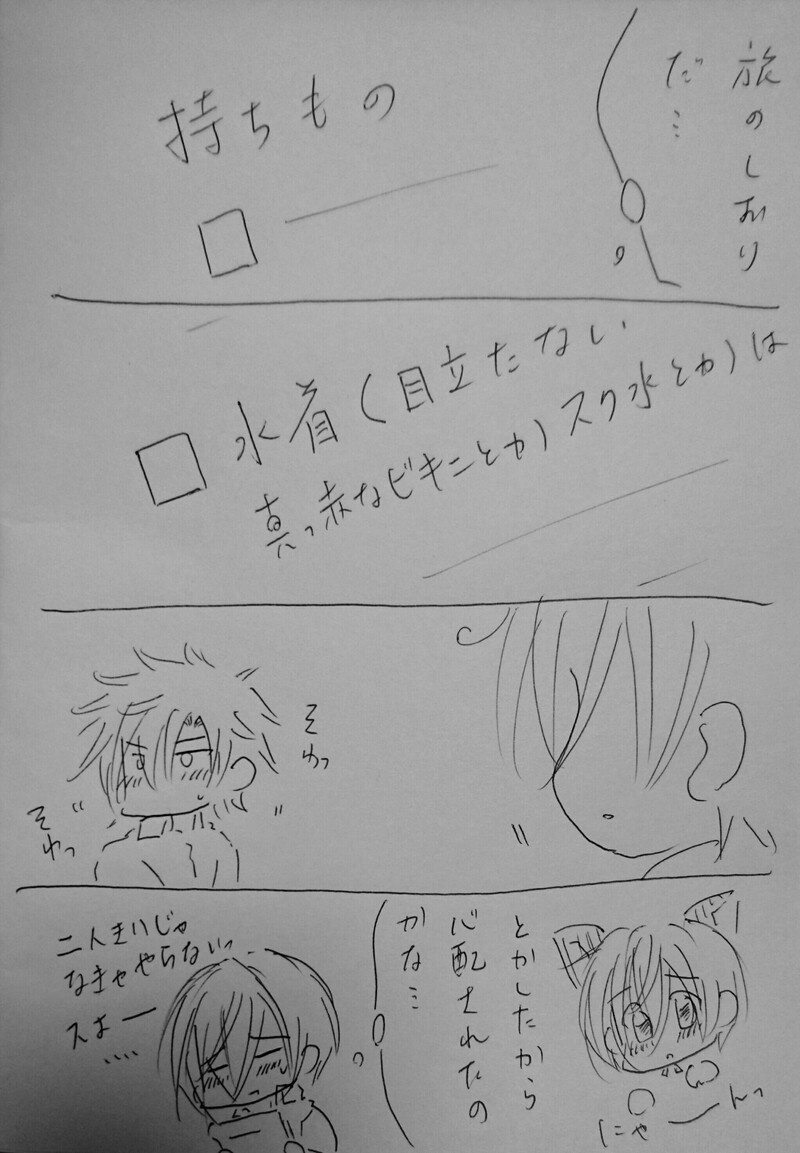 旅のしおり
だ…
持ちもの
水着(目立たない
真っ赤なビキニとか)スク水とか)は
そわっ
そわっ
にゃーんっ
とかしたから
心配されたの
かな…
二人きりじゃ
なきゃやらないっ
スよー
....